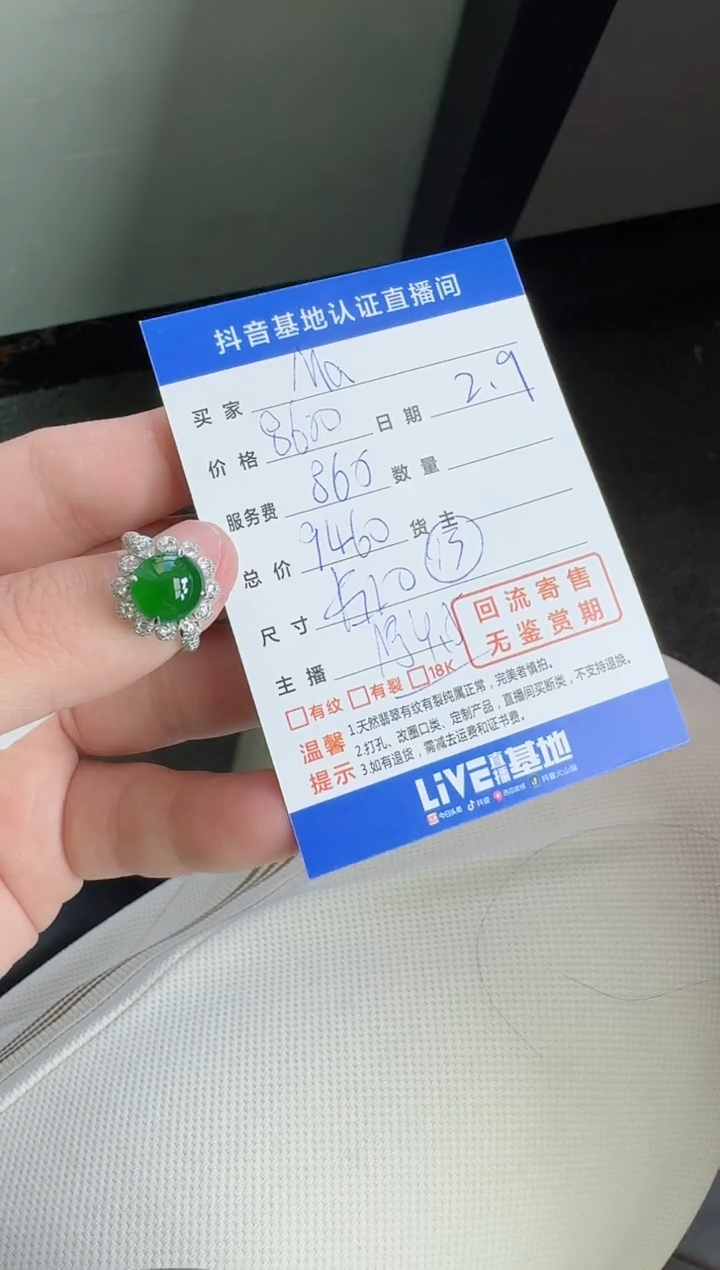 抖音基地认证直播间
买家 Ma
价格 8600 日期 2.9
服务费 860 数量
总价 9460 货主
尺寸 13
主播
回流寄售
无鉴赏期
有纹 有裂 18K
温馨提示
1.天然翡翠有纹有裂纯属正常，完美者慎拍。
2.打孔、改圈口类、定制产品，直播间买断类，不支持退换。
3.如有退货，需减去运费和证书费。
LiVE直播基地
今日头条 抖音 西瓜视频 抖音火山版